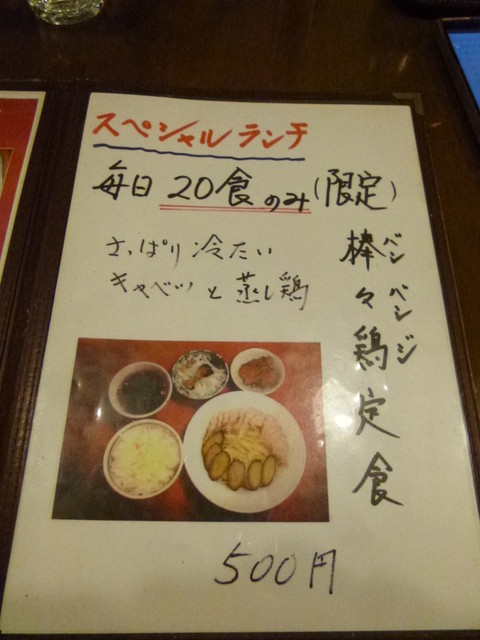 スペシャルランチ
毎日20食のみ(限定)
棒々鶏定食
バンバンジ
さっぱり冷たい
キャベツと蒸し鶏
500円